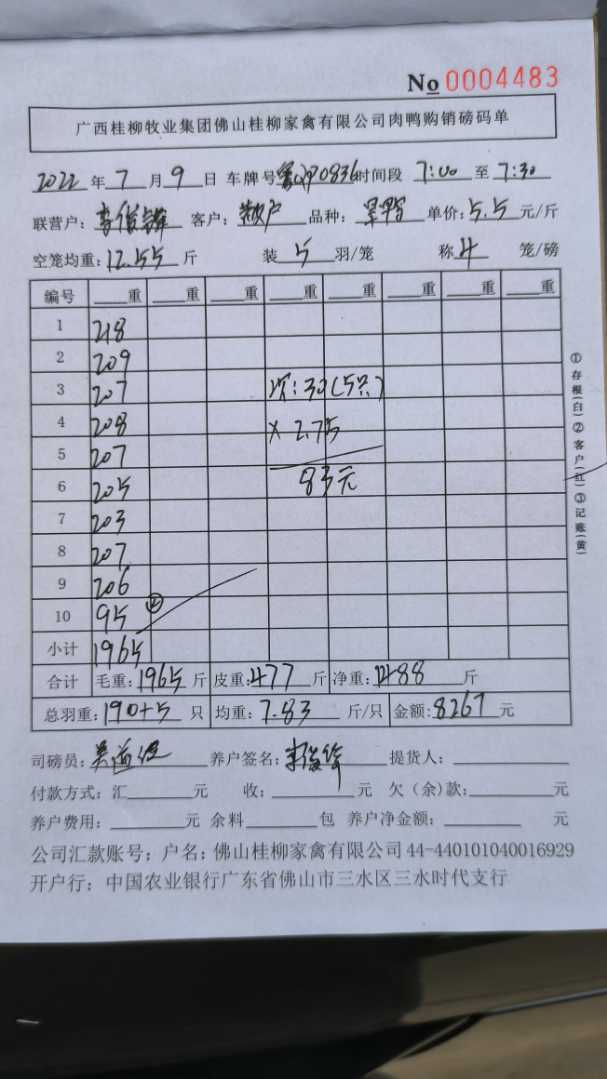 No 0004483
广西桂柳牧业集团佛山桂柳家禽有限公司肉鸭购销磅码单
2022 年 7 月 9 日 车牌号 0836 时间段 7:00 至 7:30
联营户: 客户: 散户 品种: 单价: 5.5 元/斤
空笼均重: 12.55 斤 装 5 羽/笼 称 4 笼/磅
编号 重 重 重 重 重 重 重 重
1 218
2 209
3 207 次: 30 (5只)
4 208 × 2.75
5 207
6 205 83元
7 203
8 207
9 206
10 95 ②
小计 1965
合计 毛重: 1965 斤 皮重: 477 斤 净重: 1488 斤
总羽重: 190+5 只 均重: 7.83 斤/只 金额: 8267 元
司磅员: 养户签名: 提货人:
付款方式: 汇 元 收: 元 欠（余）款: 元
养户费用: 元 余料 包 养户净金额: 元
公司汇款账号; 户名: 佛山桂柳家禽有限公司 44-440101040016929
开户行: 中国农业银行广东省佛山市三水区三水时代支行
①存根(白)②客户(红)③记账(黄)